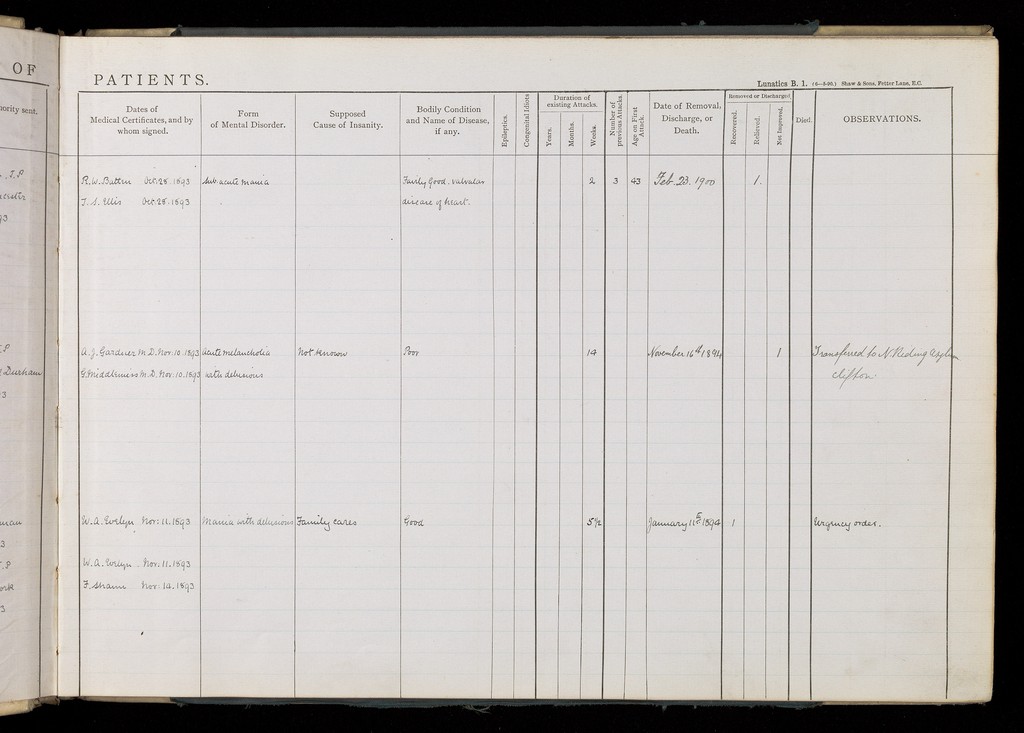 OF
PATIENTS.
Lunatics B. 1. (6-8-90.) Shaw & Sons, Fetter Lane, E.C.
Dates of
Medical Certificates, and by
whom signed.
Form
of Mental Disorder.
Supposed
Cause of Insanity.
Bodily Condition
and Name of Disease,
if any.
Epileptics.
Congenital Idiots
Duration of
existing Attacks.
Years.
Months.
Weeks.
Number of
previous Attacks
Age on First
Attack.
Date of Removal,
Discharge, or
Death.
Removed or Discharged.
Recovered.
Relieved.
Not Improved.
Died.
OBSERVATIONS.
ority sent.
J.P
93
R. W. Battin Oct. 28. 1893 Sub-acute mania Fairly good. valvular 2 3 43 Feb. 23. 1900 1.
J. S. Ellis Oct. 28. 1893 disease of heart.
A. J. Gardner M.D. Nov. 10. 1893 acute melancholia Not known Poor 14 November 16th 1894 1 Transferred to N. Riding Asylum
Durham G. Middlemiss M.D. Nov. 10. 1893 with delusions Clifton
3
W. A. Evelyn Nov: 11. 1893 Mania with delusions Family cares Good 5½ January 11th 1894 1 Urgency order.
3
W. A. Evelyn Nov: 11. 1893
F. Shann Nov: 14. 1893
3